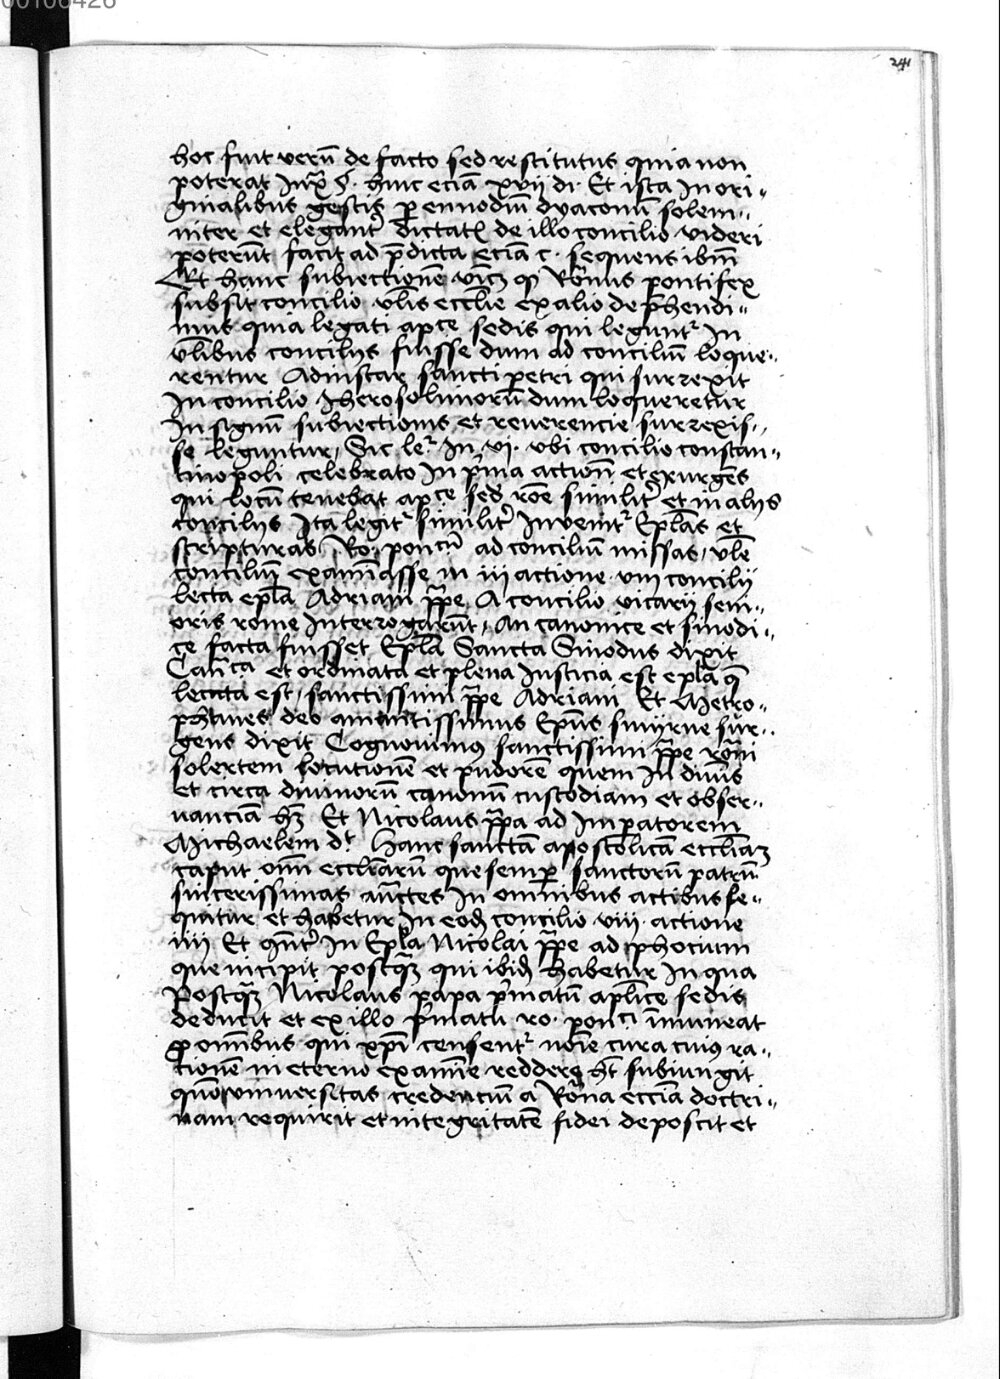 00106426
241
hoc fuit verū de facto sed restitutus quia non
poterat Iuxͣ §. hinc eciā xvij di. Et ista In ori-
ginalibus gestis ꝑ ennodiū dyaconū solem-
niter et elegantʳ dictatꝭ de illo concilio videri
poterūt facit ad p̄dicta eciā c. sequens ibm̄
Et hanc subiectionē vꝫ ꝙ Ro̅nus pontifex
subsit concilio vl̄is eccl̄ie ex alio dep̄hendi-
mus quia legati apce sedis qui leguntʳ In
vl̄ibus concilijs fuisse dum ad conciliū loque-
rentur Adinstar sancti petri qui surrexit
In concilio Iherosolimorū dum loqueretur
In signū subiectionis et reuerencie surrexis-
se leguntur, Sic leʳ. In vi. vbi concilio constan-
tinopoli celebrato In p̄ma actiōn et exurgēs
qui locū tenebat apce sed roē similitʳ et in alijs
concilijs Ita legitʳ similitʳ Inuenitʳ Ep̄las et
scripturas Ro. poncū ad conciliū missas, vl̄e
conciliū examinasse in iij actione viij concilij
lecta ep̄la Adriani p̄pe A concilio vicarij seni-
oris rome Interrogarūt, An canonice et sinodi-
ce facta fuisset Ep̄la Sancta Sinodus dixit
Can̄ca et ordinata et plena Iusticia est ep̄la q̄
lecta est, sanctissimi p̄pe Adriani Et Metro-
phanes deo amantissimus Ep̄us smirne sur-
gens dixit Cognouimꝰ sanctissimi p̄pe rom̄i
solertem locutionē et pudorē quem In diuīs
et circa diuinorū canonū custodiam et obser-
uanciā hꝫ Et Nicolaus p̄pa ad Imperatorem
Michaelem dᵗ. Hanc sanctā apostolicā eccl̄iaꝫ
caput om̄ eccl̄iarū que semꝑ sanctorū patrū
sincerissimas auctes In omnibus actibus se-
quitur et habetur In eodꝫ concilio viij actione
iiij Et q̄ntʳ In Ep̄la Nicolai p̄pe ad phocium
que incipit postqꝫ qui ibidꝫ habetur In qua
Postqꝫ Nicolaus papa p̄matū apl̄ice sedis
deducit et ex illo p̄matu ro. ponci īmineat
ꝓ omībus qui xp̄i censentʳ noīe cura cuiꝰ ra-
tionē in eterno examīe reddere ht̄ subiungit
quō vniuersitas credenciū a Ro̅na eccl̄ia doctri-
nam requirit et integritatē fidei deposcit et